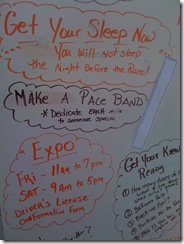 Get Your Sleep Now
You Will Not Sleep
the Night Before the Race!
MAKE A PACE BAND
* Dedicate EACH mile
to someone special
EXPO
FRI - 11am to 7pm
SAT - 9am to 5pm
DRIVER'S LICENSE
Confirmation Form
Get Your Knee
Ready
How many